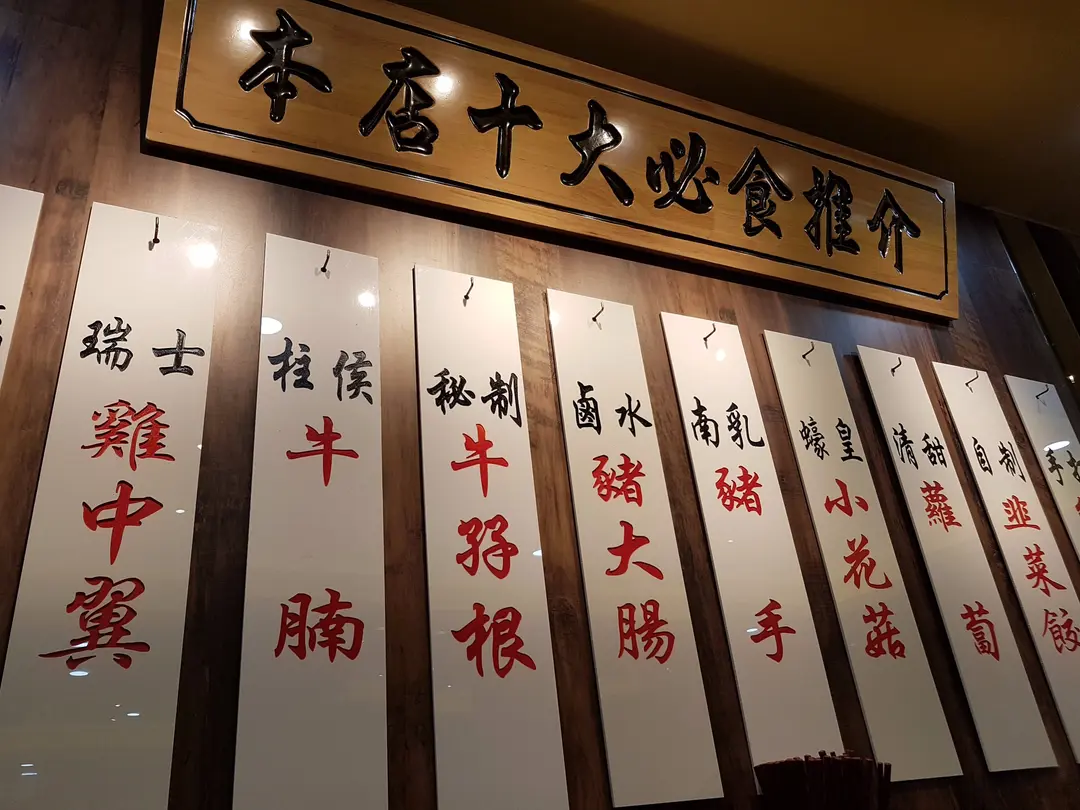 本店十大必食推介
瑞士
雞中翼
柱侯
牛腩
秘制
牛孖根
鹵水
豬大腸
南乳
豬手
蠔皇
小花菇
清甜
蘿蔔
自制
韭菜餃
手